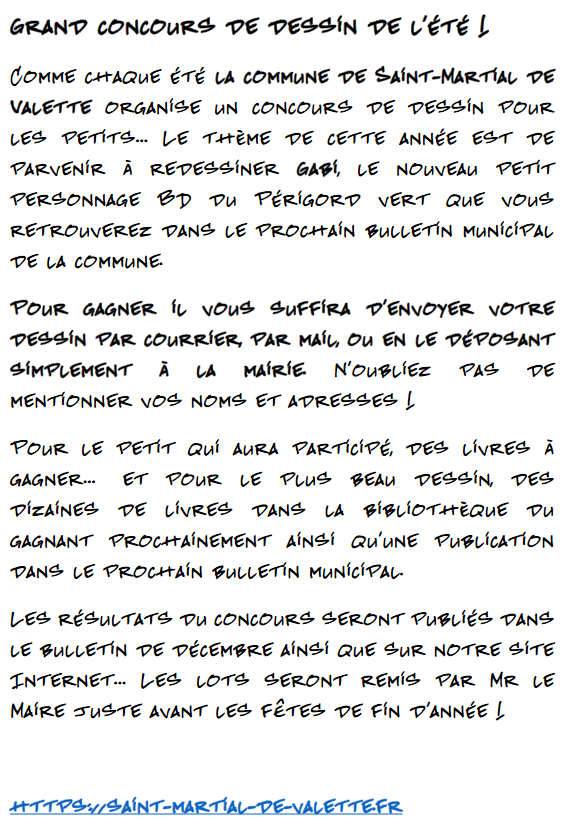 Grand concours de dessin de l'été !
Comme chaque été la commune de Saint-Martial de
Valette organise un concours de dessin pour
les petits... Le thème de cette année est de
parvenir à redessiner Gabi, le nouveau petit
personnage BD du Périgord vert que vous
retrouverez dans le prochain bulletin municipal
de la commune.
Pour gagner il vous suffira d'envoyer votre
dessin par courrier, par mail, ou en le déposant
simplement à la mairie. N'oubliez pas de
mentionner vos noms et adresses !
Pour le petit qui aura participé, des livres à
gagner... et pour le plus beau dessin, des
dizaines de livres dans la bibliothèque du
gagnant prochainement ainsi qu'une publication
dans le prochain bulletin municipal.
Les résultats du concours seront publiés dans
le bulletin de décembre ainsi que sur notre site
Internet... Les lots seront remis par Mr le
Maire juste avant les fêtes de fin d'année !
https://saint-martial-de-valette.fr